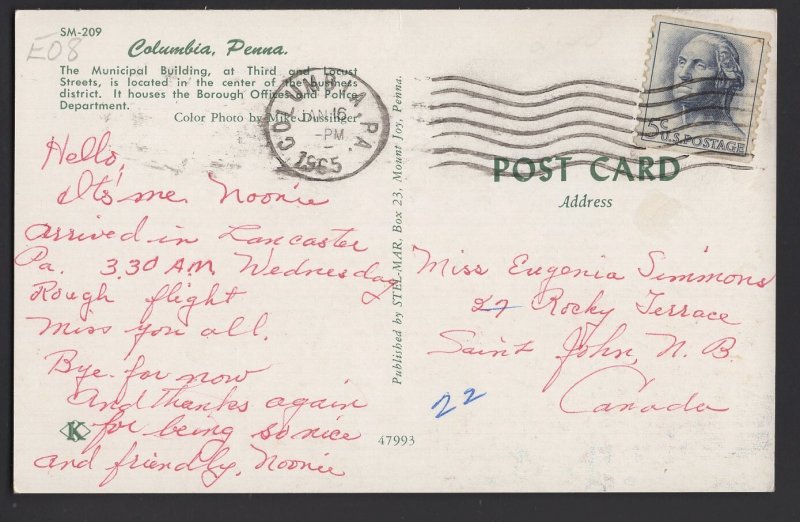 SM-209
E08
Columbia, Penna.
The Municipal Building, at Third and Locust
Streets, is located in the center of the business
district. It houses the Borough Offices and Police
Department.
Color Photo by Mike Dussinger
COLUMBIA, PA.
JAN 16
-PM
1965
5c
U.S. POSTAGE
Hello,
It's me. Noonie
arrived in Lancaster
Pa. 3.30 A.M. Wednesday
Rough flight
Miss you all.
Bye for now
And thanks again
for being so nice
and friendly, Noonie
K
47993
Published by STEL-MAR, Box 23, Mount Joy, Penna.
POST CARD
Address
Miss Eugenia Simmons
27 Rocky Terrace
Saint John, N.B
Canada
22